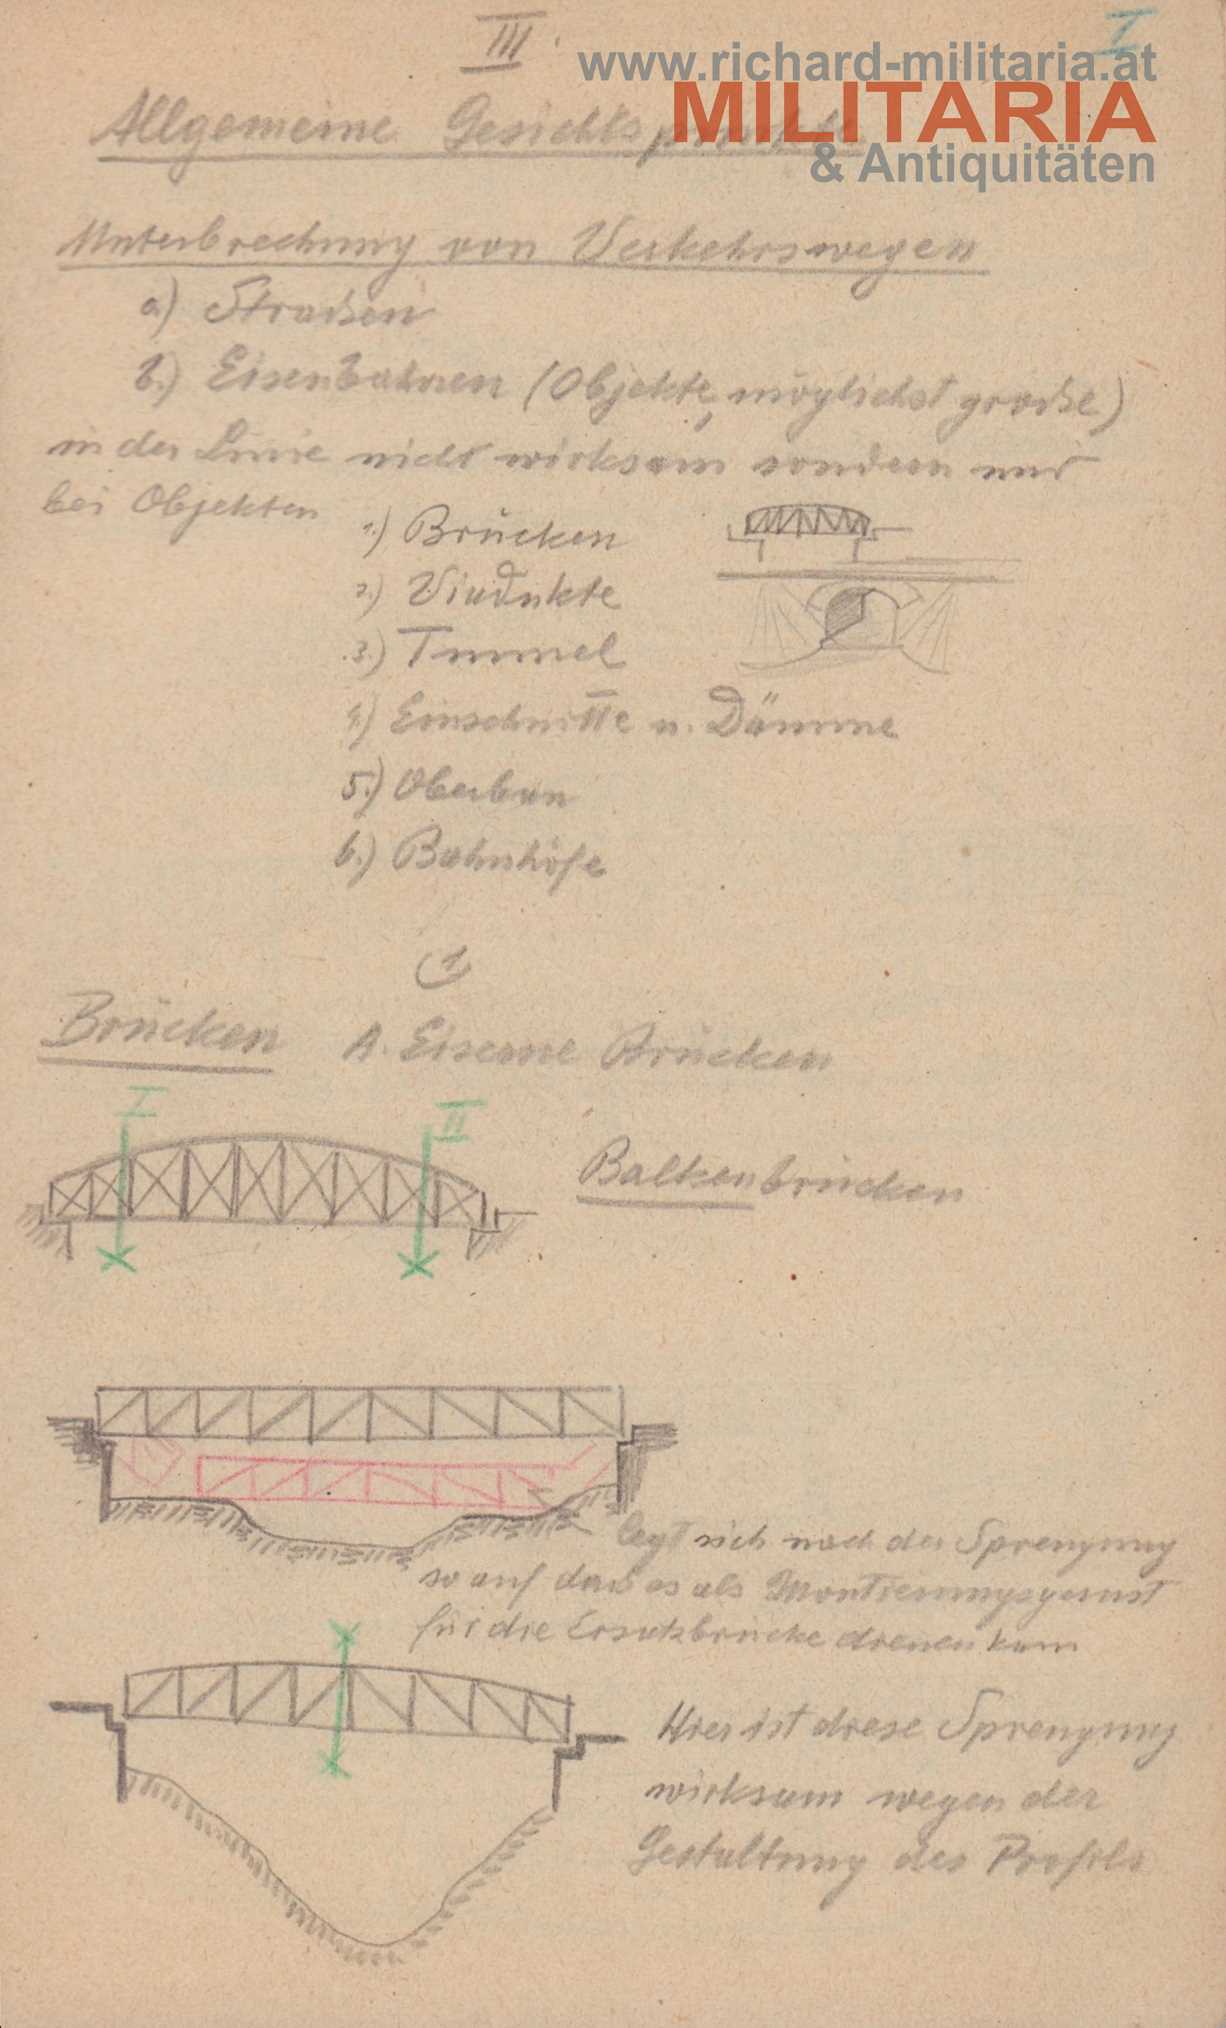 III
I
www.richard-militaria.at
MILITARIA
& Antiquitäten
Allgemeine Gesichtspunkte
Unterbrechung von Verkehrswegen
a) Straßen
b.) Eisenbahnen (Objekte, möglichst große)
in der Linie nicht wirksam sondern nur
bei Objekten
1.) Brücken
2.) Viadukte
3.) Tunnel
4.) Einschnitte u. Dämme
5.) Oberbau
6.) Bahnhöfe
1
Brücken A. Eiserne Brücken
I
II
Balkenbrücken
legt sich nach der Sprengung
so auf das es als Montierungsgerüst
für die Ersatzbrücke dienen kann
Hier ist diese Sprengung
wirksam wegen der
Gestaltung des Profils